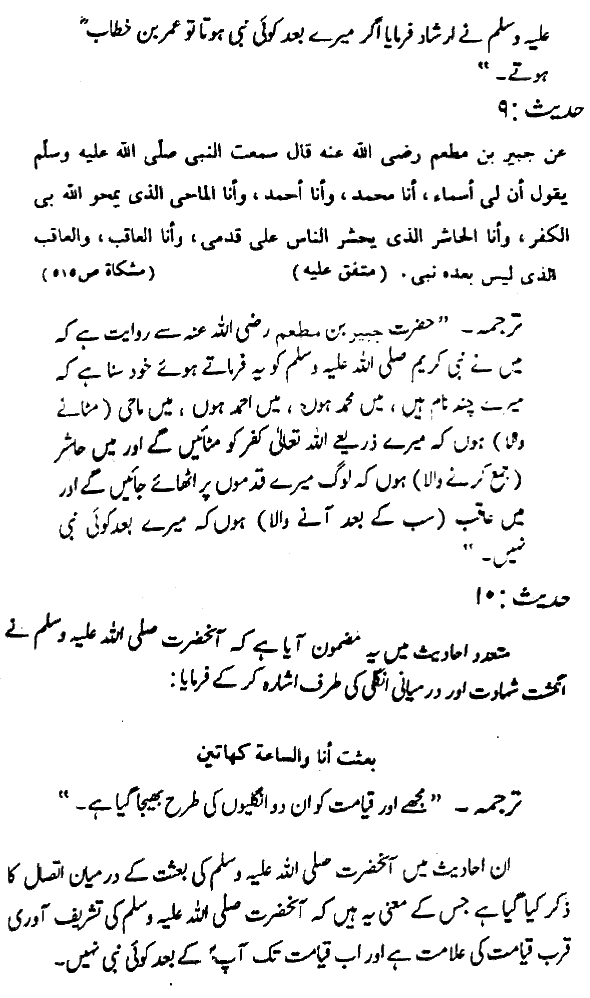 علیہ وسلم نے ارشاد فرمایا اگر میرے بعد کوئی نبی ہوتا تو عمر بن خطابؓ
ہوتے۔"
حدیث :۹
عن جبير بن مطعم رضى الله عنه قال سمعت النبى صلّى الله عليه وسلّم
يقول أن لى أسماء ، أنا محمد ، وأنا أحمد ، وأنا الماحى الذى يمحو الله بى
الكفر ، وأنا الحاشر الذى يحشر الناس على قدمى ، وأنا العاقب ، والعاقب
الذى ليس بعده نبى . (متفق عليه) (مشكاة ص ٥١٥)
ترجمہ۔ "حضرت جبیر بن مطعم رضی اللہ عنہ سے روایت ہے کہ
میں نے نبی کریم صلی اللہ علیہ وسلم کو یہ فرماتے ہوئے خود سنا ہے کہ
میرے چند نام ہیں ، میں محمد ہوں ، میں احمد ہوں ، میں ماحی (مٹانے
والا) ہوں کہ میرے ذریعے اللہ تعالیٰ کفر کو مٹائیں گے اور میں حاشر
(جمع کرنے والا) ہوں کہ لوگ میرے قدموں پر اٹھائے جائیں گے اور
میں عاقب (سب کے بعد آنے والا) ہوں کہ میرے بعد کوئی نبی
نہیں۔"
حدیث :۱۰
متعدد احادیث میں یہ مضمون آیا ہے کہ آنحضرت صلی اللہ علیہ وسلم نے
انگشت شہادت اور درمیانی انگلی کی طرف اشارہ کر کے فرمایا:
بعثت أنا والساعة كهاتين
ترجمہ۔ "مجھے اور قیامت کو ان دو انگلیوں کی طرح بھیجا گیا ہے۔"
ان احادیث میں آنحضرت صلی اللہ علیہ وسلم کی بعثت کے درمیان اتصال کا
ذکر کیا گیا ہے جس کے معنی یہ ہیں کہ آنحضرت صلی اللہ علیہ وسلم کی تشریف آوری
قرب قیامت کی علامت ہے اور اب قیامت تک آپؐ کے بعد کوئی نبی نہیں۔